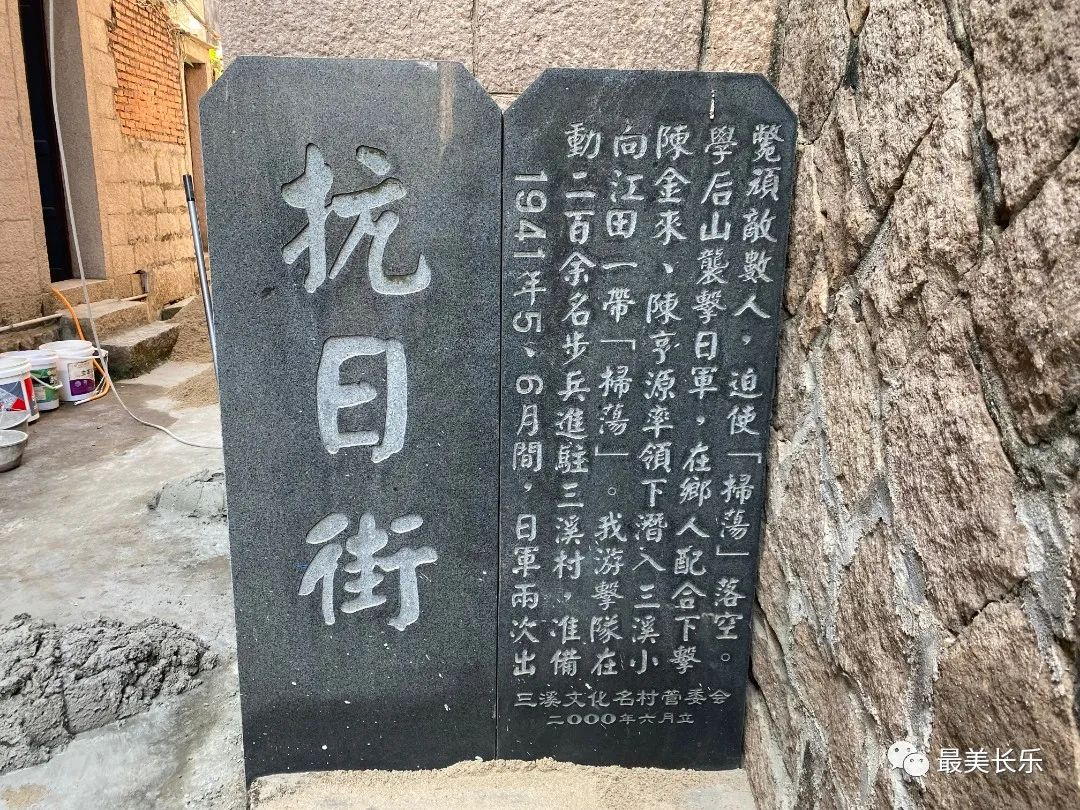 抗日街
1941年5、6月間，日軍兩次出
動二百余名步兵進駐三溪村，准備
向江田一帶「掃蕩」。我游擊隊在
陳金來、陳亨源率領下潛入三溪小
學后山襲擊日軍，在鄉人配合下擊
斃頑敵數人，迫使「掃蕩」落空。
三溪文化名村管委会
二000年六月立
最美长乐